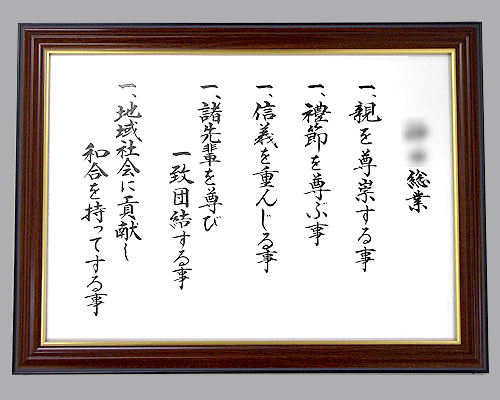 総業
一、親を尊崇する事
一、禮節を尊ぶ事
一、信義を重んじる事
一、諸先輩を尊び
一致団結する事
一、地域社会に貢献し
和合を持ってする事